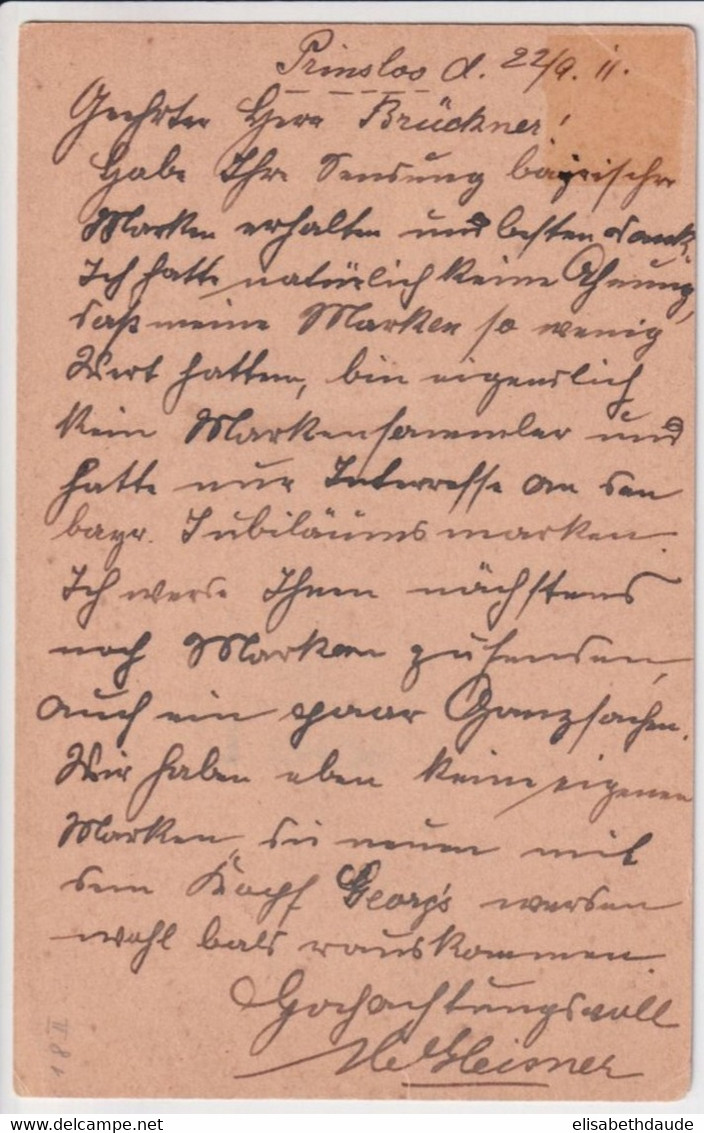 Prinsloo d. 22/9. 11.
Geehrter Herr Brückner!
Habe Ihre Sendung bayrischer
Marken erhalten und besten Dank.
Ich hatte natürlich keine Ahnung,
daß meine Marken so wenig
Wert hatten, bin eigendlich
kein Markensammler und
hatte nur Interresse an den
bayr. Jubiläumsmarken.
Ich werde Ihnen nächstens
noch Marken zusenden,
auch ein paar Ganzsachen.
Wir haben eben keine eigenen
Marken, die neuen mit
dem Kopf Georgs werden
wohl bald rauskommen.
Hochachtungsvoll
18 II
elisabethdaude